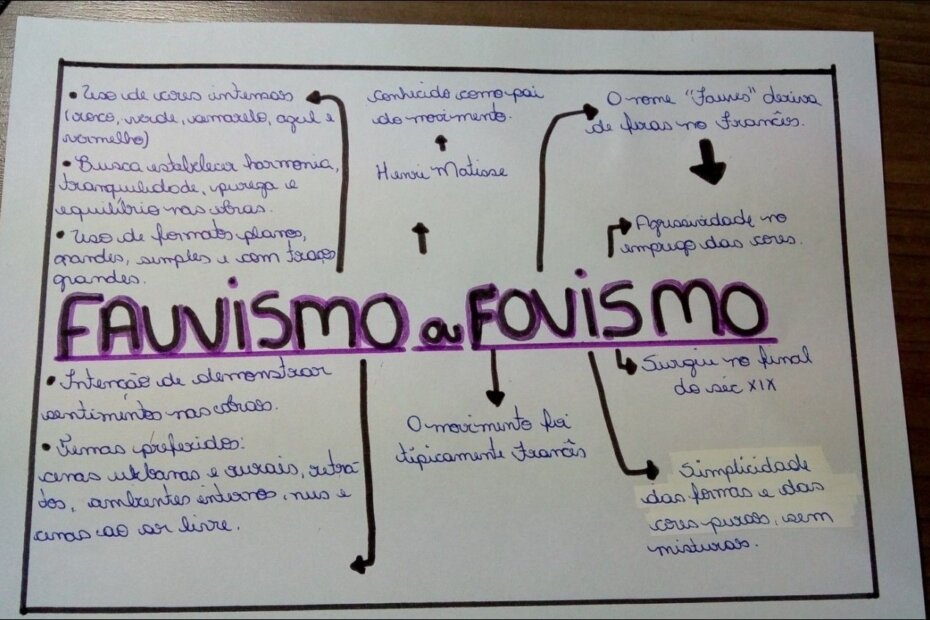 • Uso de cores intensas
(roxo, verde, amarelo, azul e
vermelho)
• Busca estabelecer harmonia,
tranquilidade, pureza e
equilíbrio nas obras.
• Uso de formatos planos,
grandes, simples e com traços
grandes.
conhecido como pai
do movimento.
Henri Matisse
O nome "Fauves" deriva
de feras no Francês.
Agressividade no
emprego das cores.
FAUVISMO ou FOVISMO
• Intenção de demonstrar
sentimentos nas obras.
• Temas preferidos:
cenas urbanas e rurais, retra-
tos, ambientes internos, nus e
cenas ao ar livre.
O movimento foi
tipicamente Francês
Surgiu no final
do séc XIX
Simplicidade
das formas e das
cores puras, sem
misturas.